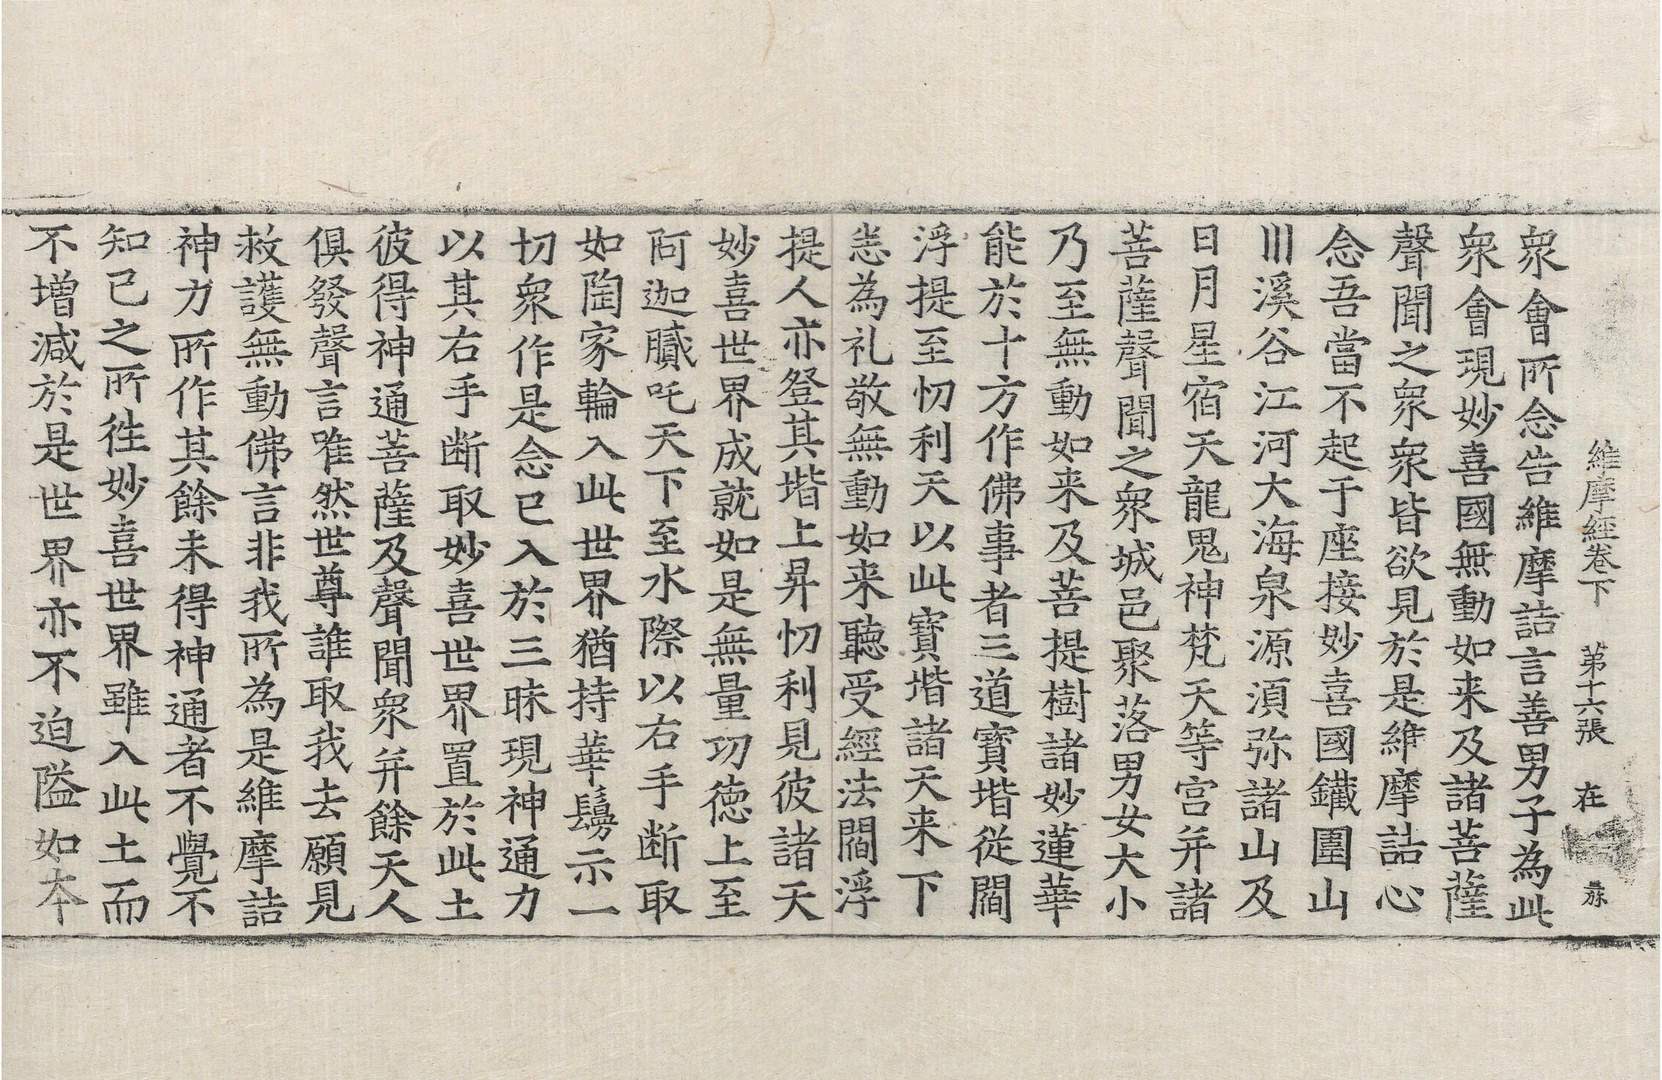 維摩經卷下 第十六張 在
眾會所念告維摩詰言善男子為此
眾會現妙喜國無動如来及諸菩薩
聲聞之眾眾皆欲見於是維摩詰心
念吾當不起于座接妙喜國鐵圍山
川溪谷江河大海泉源湏弥諸山及
日月星宿天龍鬼神梵天等宮并諸
菩薩聲聞之眾城邑聚落男女大小
乃至無動如来及菩提樹諸妙蓮華
能於十方作佛事者三道寳堦従閻
浮提至忉利天以此寳堦諸天来下
恙為礼敬無動如来聽受經法閻浮
提人亦登其堦上昇忉利見彼諸天
妙喜世界成就如是無量功徳上至
阿迦膩吒天下至水際以右手断取
如陶家輪入此世界猶持華鬘示一
切眾作是念已入於三昧現神通力
以其右手断取妙喜世界置於此土
彼得神通菩薩及聲聞眾并餘天人
俱發聲言唯然世尊誰取我去願見
救護無動佛言非我所為是維摩詰
神力所作其餘未得神通者不覺不
知己之所徃妙喜世界雖入此土而
不增減於是世界亦不迫隘如本